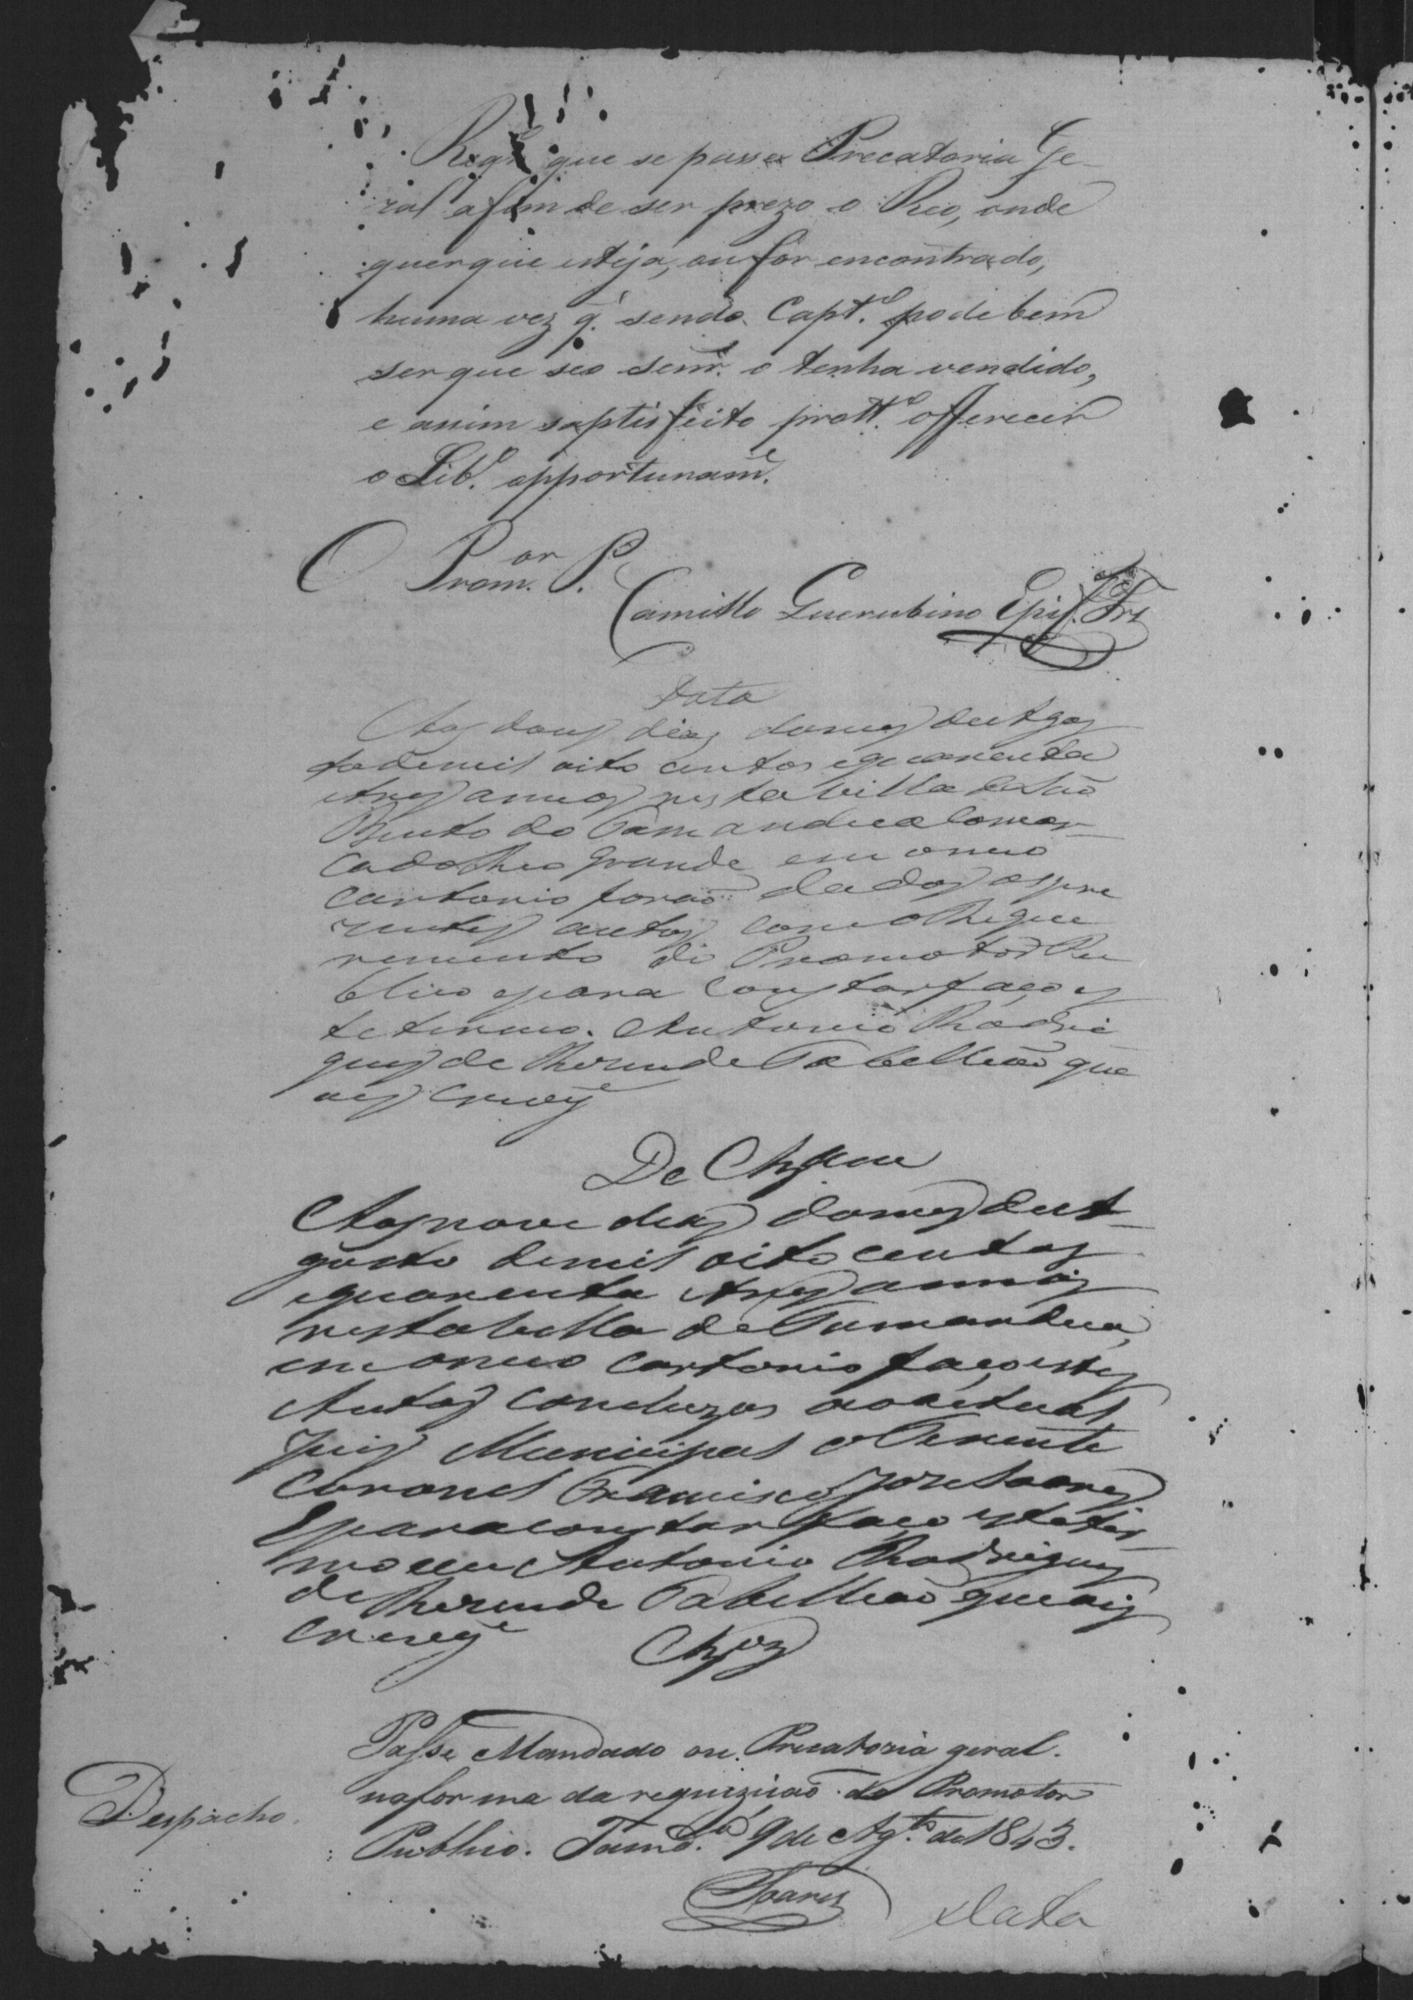 Reqr.º que se passe Precatoria Ge-
ral afim de ser prezo o Reo, onde
quer que esteja, ou for encontrado,
huma vez q. sendo Capt.º pode bem
ser que seo senr. o tenha vendido,
e assim saptisfeito prott.º offerecer
o Lib.º opportunam.e
O Prom.or P.
Camillo Querubino Epif.
Data
Aos dous dias do mes de Agos
to de mil oito centos e quarenta
e tres annos nesta Villa de São
Bento do Tamandua Comar-
ca do Rio Grande em o meo
Cartorio forão dados os pre
zentes autos com o Reque
rimento do Promotor Pu
blico e para constar faço es
te termo. Antonio Rodri
gues de Rezende Tabelleão que
o escrevy
De Clzam
Aos nove dias do mes de A-
gosto de mil oito centos
e quarenta e tres annos
nesta Villa de Tamandua,
em o meo Cartorio faço estes
Autos concluzos ao actual
Juis Municipal o Tenente
Coronel Francisco Jose Soares
E para constar faço este ter-
mo eu Antonio Rodrigues
de Rezende Tabelleão que o es
crevy
Clzos
Passe Mandado ou Precatoria geral
na forma da requizição do Promotor
Despacho.
Publico. Tamd.ª 9 de Ag.to de 1843.
Soares
Data